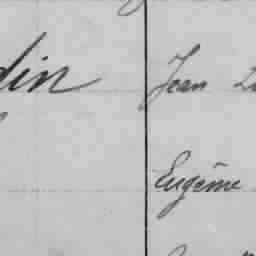 din Jean
Eugène